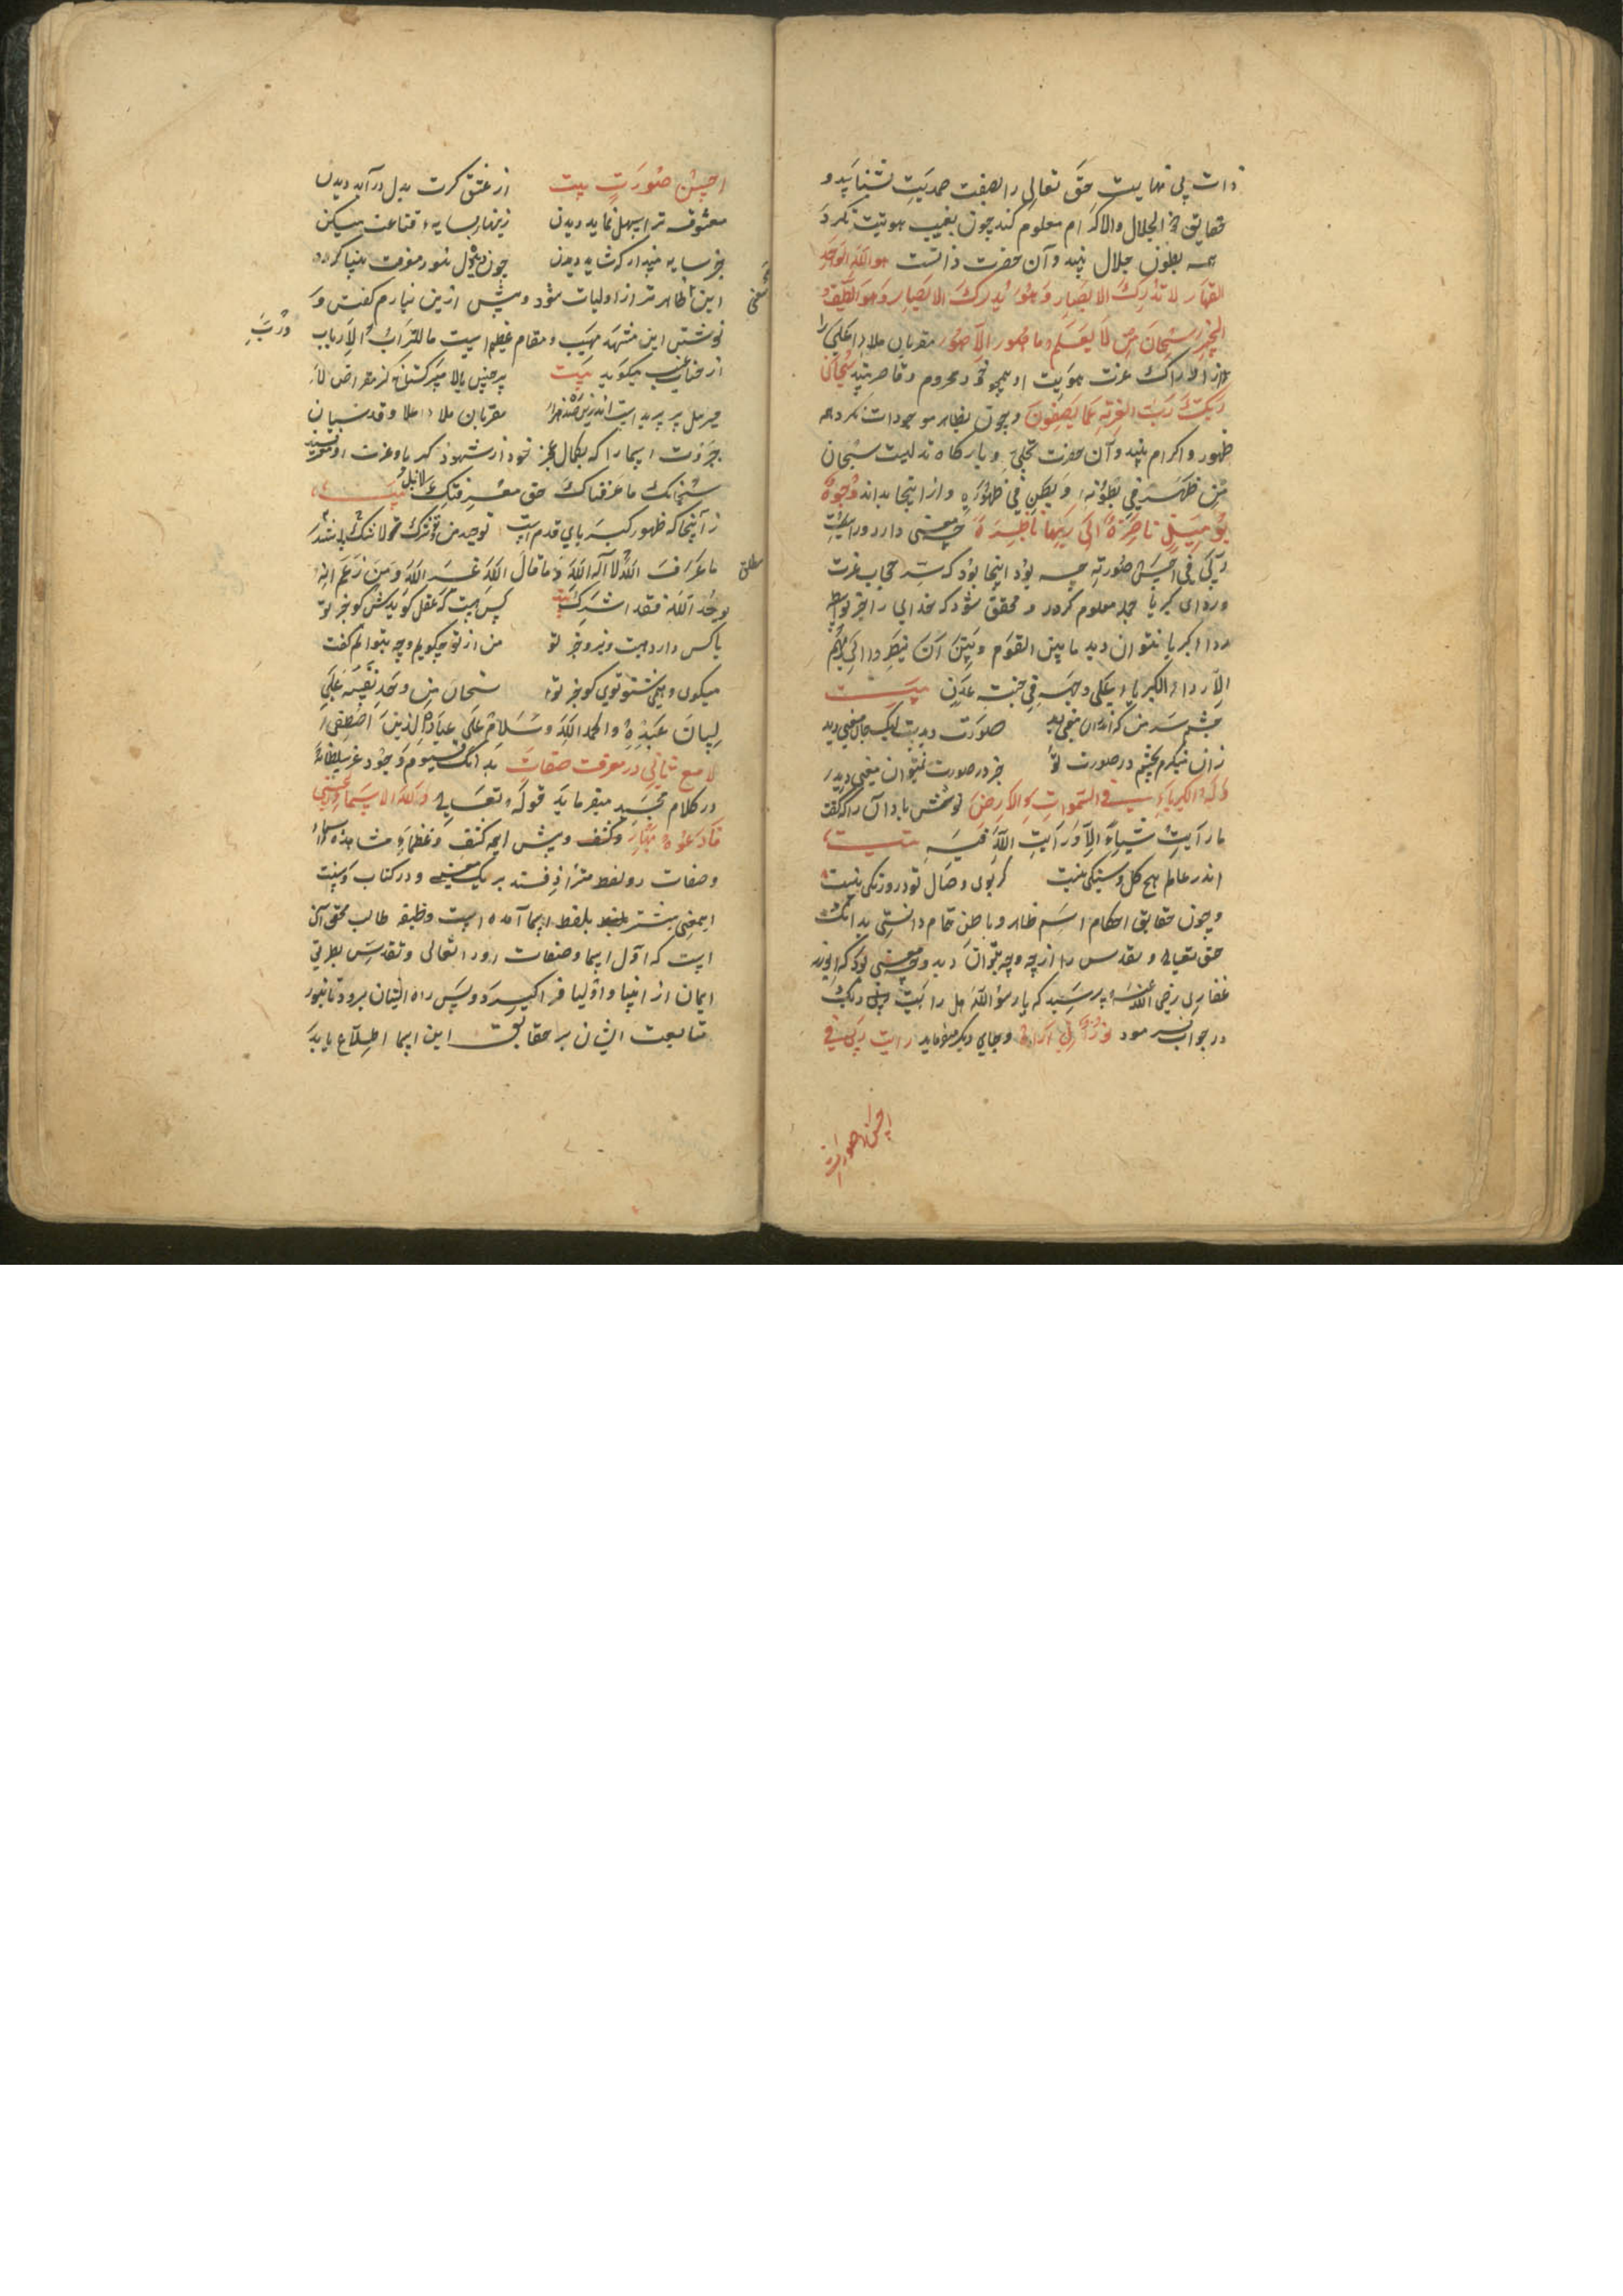 ذات بی نهایت حق تعالی را بصفت صمدیت بشناسد و
حقایق ذو الجلال والاکرام معلوم کند چون بغیب هویت نکرد
همه بطون جلال بیند و آن حضرت ذاتست هو الله الواحد
القهار لا تدرکه الابصار وهو یدرک الابصار وهو اللطیف
الخبیر سبحان من لا یعلم ما هو الا هو مقربان ملاء اعلی را
از ادراک عزت هویت او همچو خود محروم و قاصر بیند سبحان
ربک رب العزة عما یصفون و چون بظاهر موجودات نکرد همه
ظهور و اکرام بیند و آن حضرت تجلی و بارکاه تدلیست سبحان
من ظهر فی بطونه و بطن فی ظهوره و از اینجا بداند وجوه
یومئذ ناضرة الی ربها ناظرة چه معنی دارد و رایت
ربی فی احسن صورته چه بود اینجا بود که ستر حجاب عزت
ورداء کبریا جمله معلوم کردد و محقق شود که خدای را بجز بواسطه
رداء کبریا نتوان دید ما بین القوم وبین ان ینظروا الی ربهم
الا رداء الکبریاء علی وجهه فی جنت عدن بیت
چشم سر من کرانه ان معنی دید صورت دیدست لیک جان معنی دید
زان مینکرم بچشم در صورت تو جز در صورت نتوان معنی دید
وله الکبریاء فی السموات والارض نوشش باد آن را که کفت
ما رایت شیاء الا ورایت الله فیه بیت
اندر عالم هیچ کل و سنکی نیست کز بوی وصال تو درو رنکی نیست
و چون حقایق احکام اسم ظاهر و باطن تمام دانستی بدانک
حق تعالی و تقدس را از چه وجه بتوان دید و چه معنی بود که ابوذر
غفاری رضی الله عنه پرسید که یا رسول الله هل رایت ربک
در جواب فرمود نور انی اراه و بجای دیکر میفرماید رایت ربی فی
احسن صورت
احسن صورت بیت از عشق کرت بدل درآید دیدن
معشوقه ترا سهل نماید دیدن زینهار بسایه قناعت میکن
جز سایه مپندار که شاید دیدن چون دیده دل بنور معرفت بینا کردد
این معنی ظاهرتر از اولیات شود و بیش ازین نیارم کفتن و
نوشتن این مشهد مهیب و مقام عظیم است ما للتراب ورب الارباب
از جناب غیب میکوید بیت
مقربان ملاء اعلا و قدسیان
جبروت اسما را که بکمال عجز خود از شهود کبریا و عزت او معترفند
سبحانک ما عرفناک حق معرفتک لابل بیت
زآنجا که ظهور کبریای قدم است توحید من و تو شرک
ما عرف الله الا الله و ما قال الله غیر الله و من زعم انه
یوحد الله فقد اشرک بیت کس نیست که عقل کویدش کو جز تو
یا کس دارد هست و نیرو جز تو من از تو چکویم و چه بتوانم کفت
میکوی و همی شنو توی کو جز تو سبحان من وحد نفسه علی
لسان عبده والحمد لله وسلام علی عباده الذین اصطفی
لامع ثانی در معرفت صفات بدانک قیوم وجود عز سلطانه
در کلام مجید میفرماید قوله تعالی ولله الاسماء الحسنی
فادعوه بها و کشف و بیش ایمه کشف و عظماء مشاهده اسماء
وصفات دو لفظ مترادفند بر یک معنی و در کتاب و سنت
این معنی بیشتر بلفظ اسما آمده است وظیفه طالب محقق آن
است که اول اسما و صفات او را تعالی و تقدس بطریق
ایمان از انبیا و اولیا فرا کیرد و پس راه ایشان برود تا بنور
متابعت ایشان بر حقایق این اسما اطلاع یابد